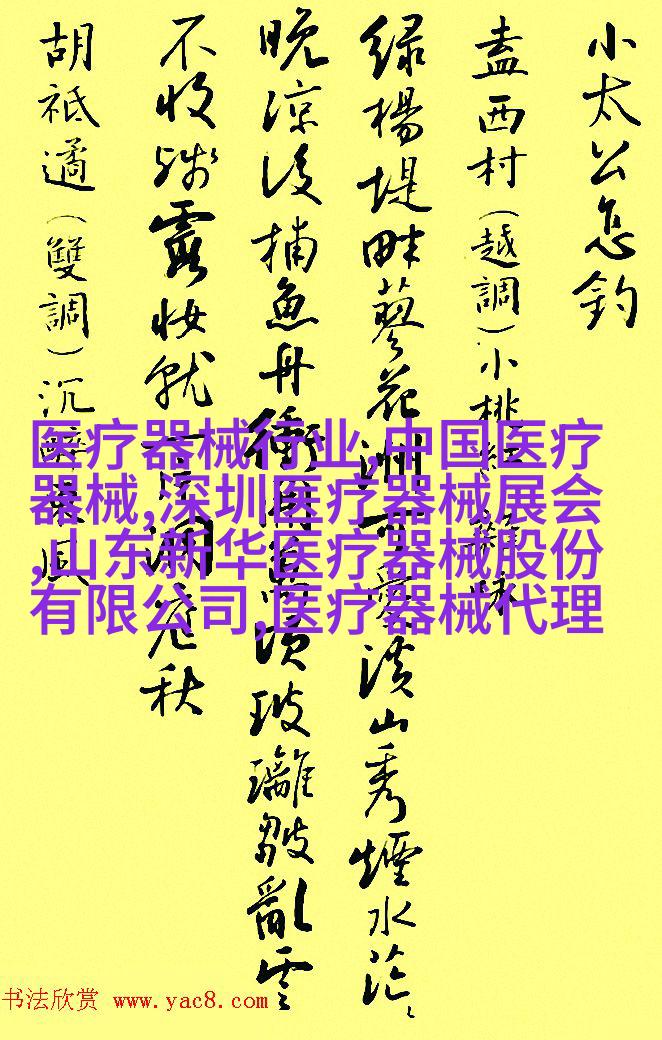 小太公怠釣
盍西村(越調)小桃紅 雜咏
緑楊堤畔蓼花洲可愛溪山秀煙水茫、
晚涼後捕魚舟衝開萬頃玻璃皺亂雲
不收殘霞妝就一片洞庭秋
胡祗遹(雙調)沉醉東風
医疗器械行业,中国医疗
器械,深圳医疗器械展会
,山东新华医疗器械股份
有限公司,医疗器械代理
书法欣赏 www.yac8.com